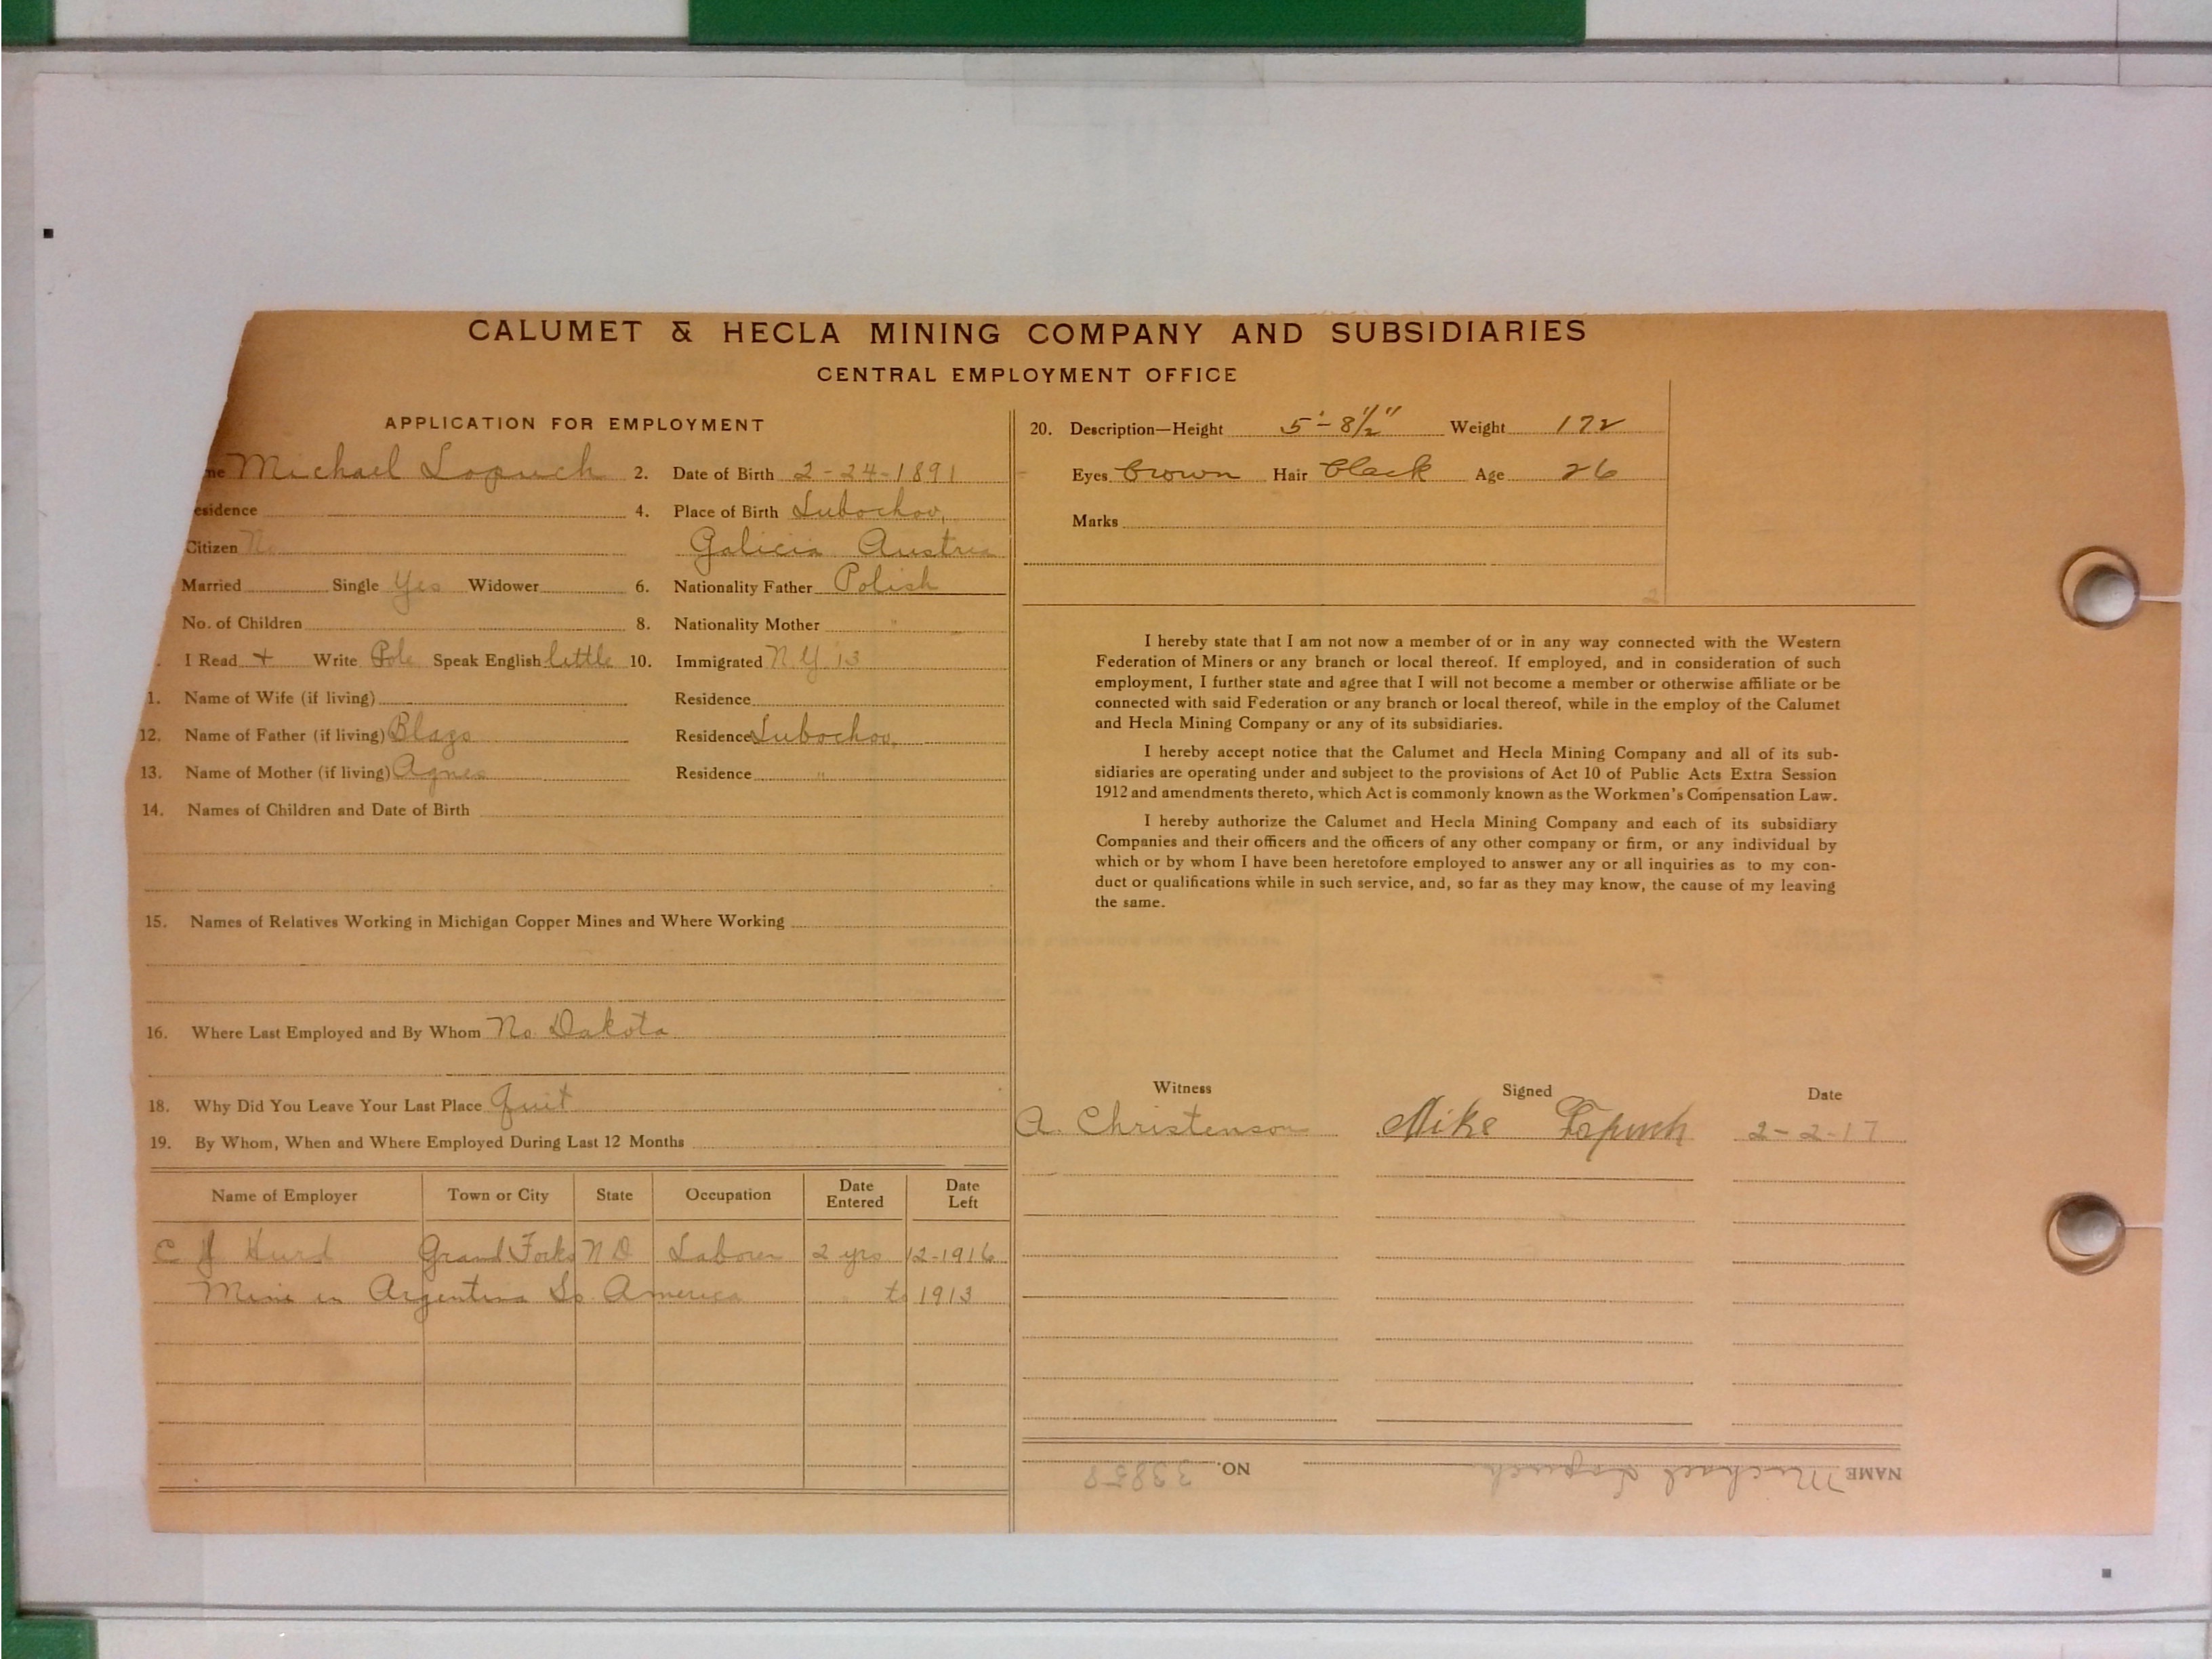 CALUMET & HECLA MINING COMPANY AND SUBSIDIARIES
CENTRAL EMPLOYMENT OFFICE
APPLICATION FOR EMPLOYMENT
me Michael Lopuch 2. Date of Birth 2-24-1891
esidence 4. Place of Birth Lubochov,
Citizen No Galicia Austria
Married Single Yes Widower 6. Nationality Father Polish
No. of Children 8. Nationality Mother "
I Read + Write Pole Speak English little 10. Immigrated N.Y. 13
1. Name of Wife (if living) Residence
12. Name of Father (if living) Blazo Residence Lubochov,
13. Name of Mother (if living) Agnes Residence "
14. Names of Children and Date of Birth
15. Names of Relatives Working in Michigan Copper Mines and Where Working
16. Where Last Employed and By Whom No. Dakota
18. Why Did You Leave Your Last Place Quit
19. By Whom, When and Where Employed During Last 12 Months
Name of Employer Town or City State Occupation Date Entered Date Left
C J Hurd Grand Forks N D Laborer 2 yrs 12-1916
Mine in Argentina So. America to 1913
20. Description—Height 5'-8½" Weight 172
Eyes Brown Hair Black Age 26
Marks
2
I hereby state that I am not now a member of or in any way connected with the Western
Federation of Miners or any branch or local thereof. If employed, and in consideration of such
employment, I further state and agree that I will not become a member or otherwise affiliate or be
connected with said Federation or any branch or local thereof, while in the employ of the Calumet
and Hecla Mining Company or any of its subsidiaries.
I hereby accept notice that the Calumet and Hecla Mining Company and all of its sub-
sidiaries are operating under and subject to the provisions of Act 10 of Public Acts Extra Session
1912 and amendments thereto, which Act is commonly known as the Workmen's Compensation Law.
I hereby authorize the Calumet and Hecla Mining Company and each of its subsidiary
Companies and their officers and the officers of any other company or firm, or any individual by
which or by whom I have been heretofore employed to answer any or all inquiries as to my con-
duct or qualifications while in such service, and, so far as they may know, the cause of my leaving
the same.
Witness Signed Date
A. Christenson Mike Lopuch 2-2-17
NAME Michael Lopuch NO. 33858